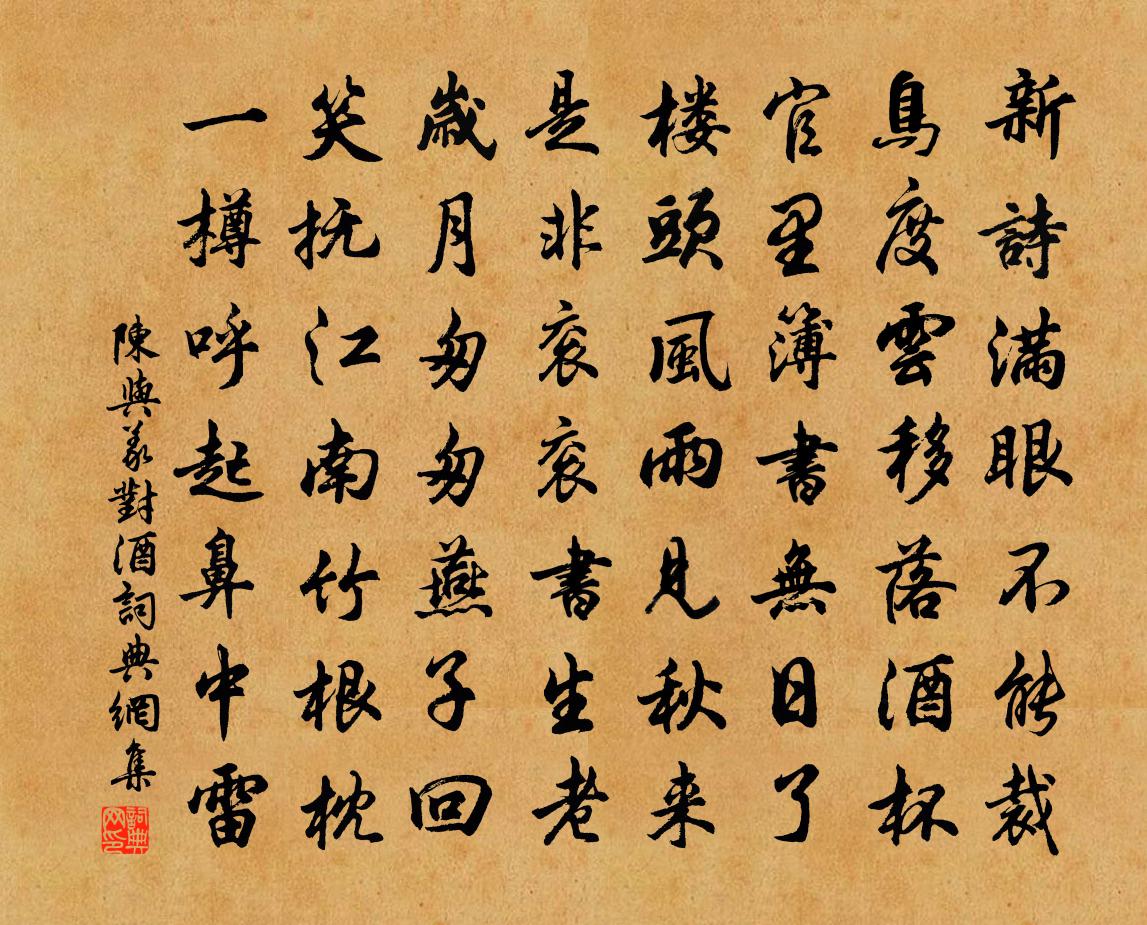 新詩滿眼不能裁
鳥度雲移落酒杯
官里簿書無日了
楼頭風雨見秋来
是非衮衮書生老
歲月匆匆燕子回
笑抚江南竹根枕
一樽呼起鼻中雷
陳與義對酒詞典網集
詞典网印